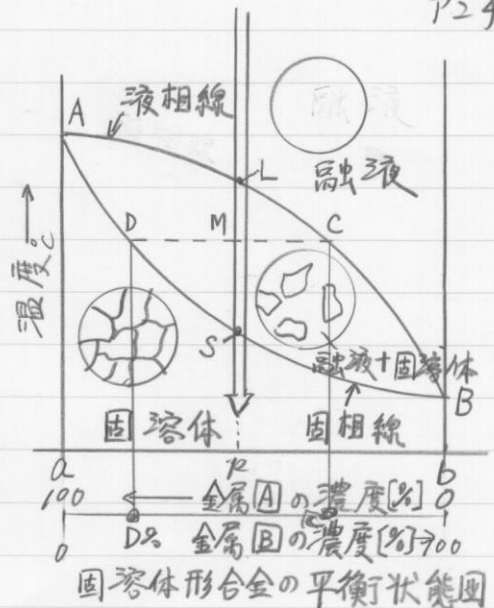 P24
A
液相線
L
融液
D
M
C
温度℃
S
融液+固溶体
B
固溶体
固相線
a
k
b
100
金属A の濃度[%]
0
0
D%
金属B の濃度[%]
100
固溶体形合金の平衡状態図